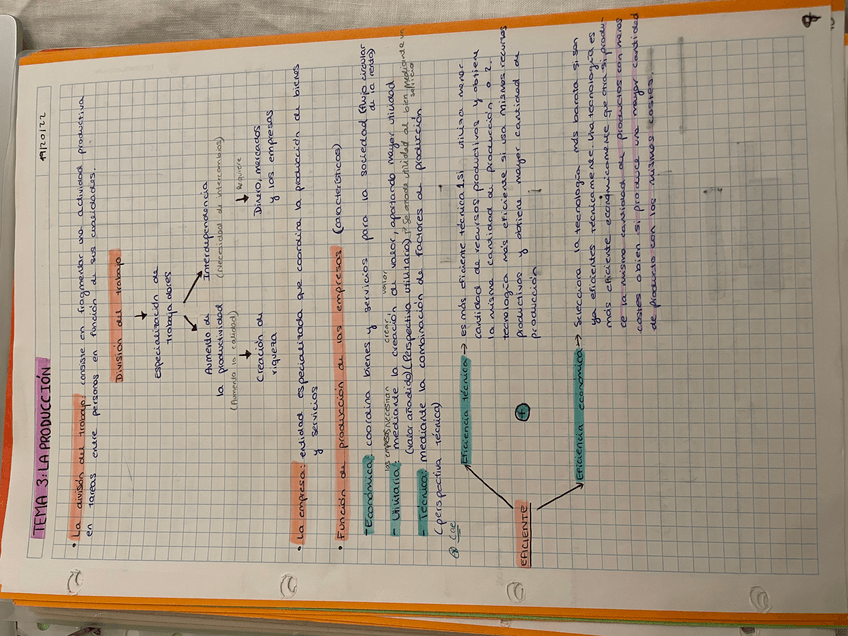 TEMA 3: LA PRODUCCIÓN
19/20/22
• La división del trabajo: consiste en fragmentar una actividad productiva
en tareas entre personas en función de sus cualidades.
División del trabajo
Especialización de
trabajadores
Aumento de
la productividad
(Aumenta la calidad)
Interdependencia
(necesidad de intercambios)
Requiere
Creación de
riqueza
Dinero, mercados
y las empresas
• La empresa: entidad especializada que coordina la producción de bienes
y servicios
• Función de producción de las empresas (características)
- Económica: coordina bienes y servicios para la sociedad (flujo circular
de la renta)
las empresas necesitan crear valor
- Utilitaria: mediante la creación de valor, aportando mayor utilidad
(valor añadido) (Perspectiva utilitaria) Se añade utilidad al bien mediante un
servicio
- Técnica: mediante la combinación de factores de producción
(perspectiva técnica)
EFICIENTE
Eficiencia técnica → es más eficiente técnica 1. si utiliza menor
cantidad de recursos productivos y obtiene
la misma cantidad de producción o 2.
tecnología más eficiente si usa mismos recursos
productivos y obtiene mayor cantidad de
producción
+
Eficiencia económica → Selecciona la tecnología más barata si son
ya eficientes técnicamente. Una tecnología es
más eficiente económicamente que otra si produ-
ce la misma cantidad de productos con menos
costes o bien si produce una mayor cantidad
de producto con los mismos costes.